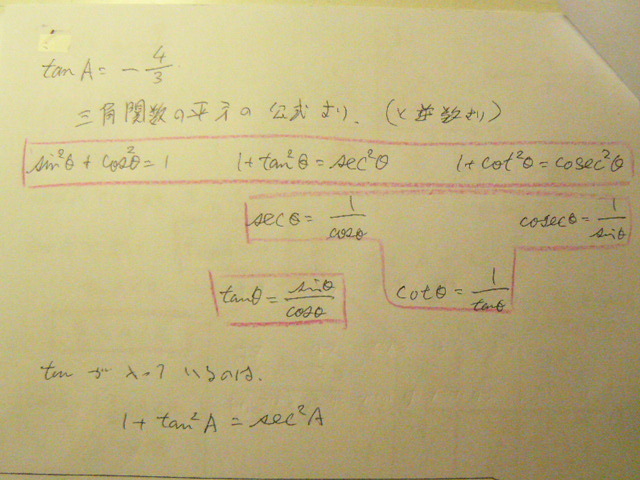 tanA = -4/3.
三角関数の平方の公式より. (と逆数より)
sin²θ + cos²θ = 1 1 + tan²θ = sec²θ 1 + cot²θ = cosec²θ
secθ = 1/cosθ cosecθ = 1/sinθ
tanθ = sinθ/cosθ cotθ = 1/tanθ
tanが入っているのは.
1 + tan²A = sec²A